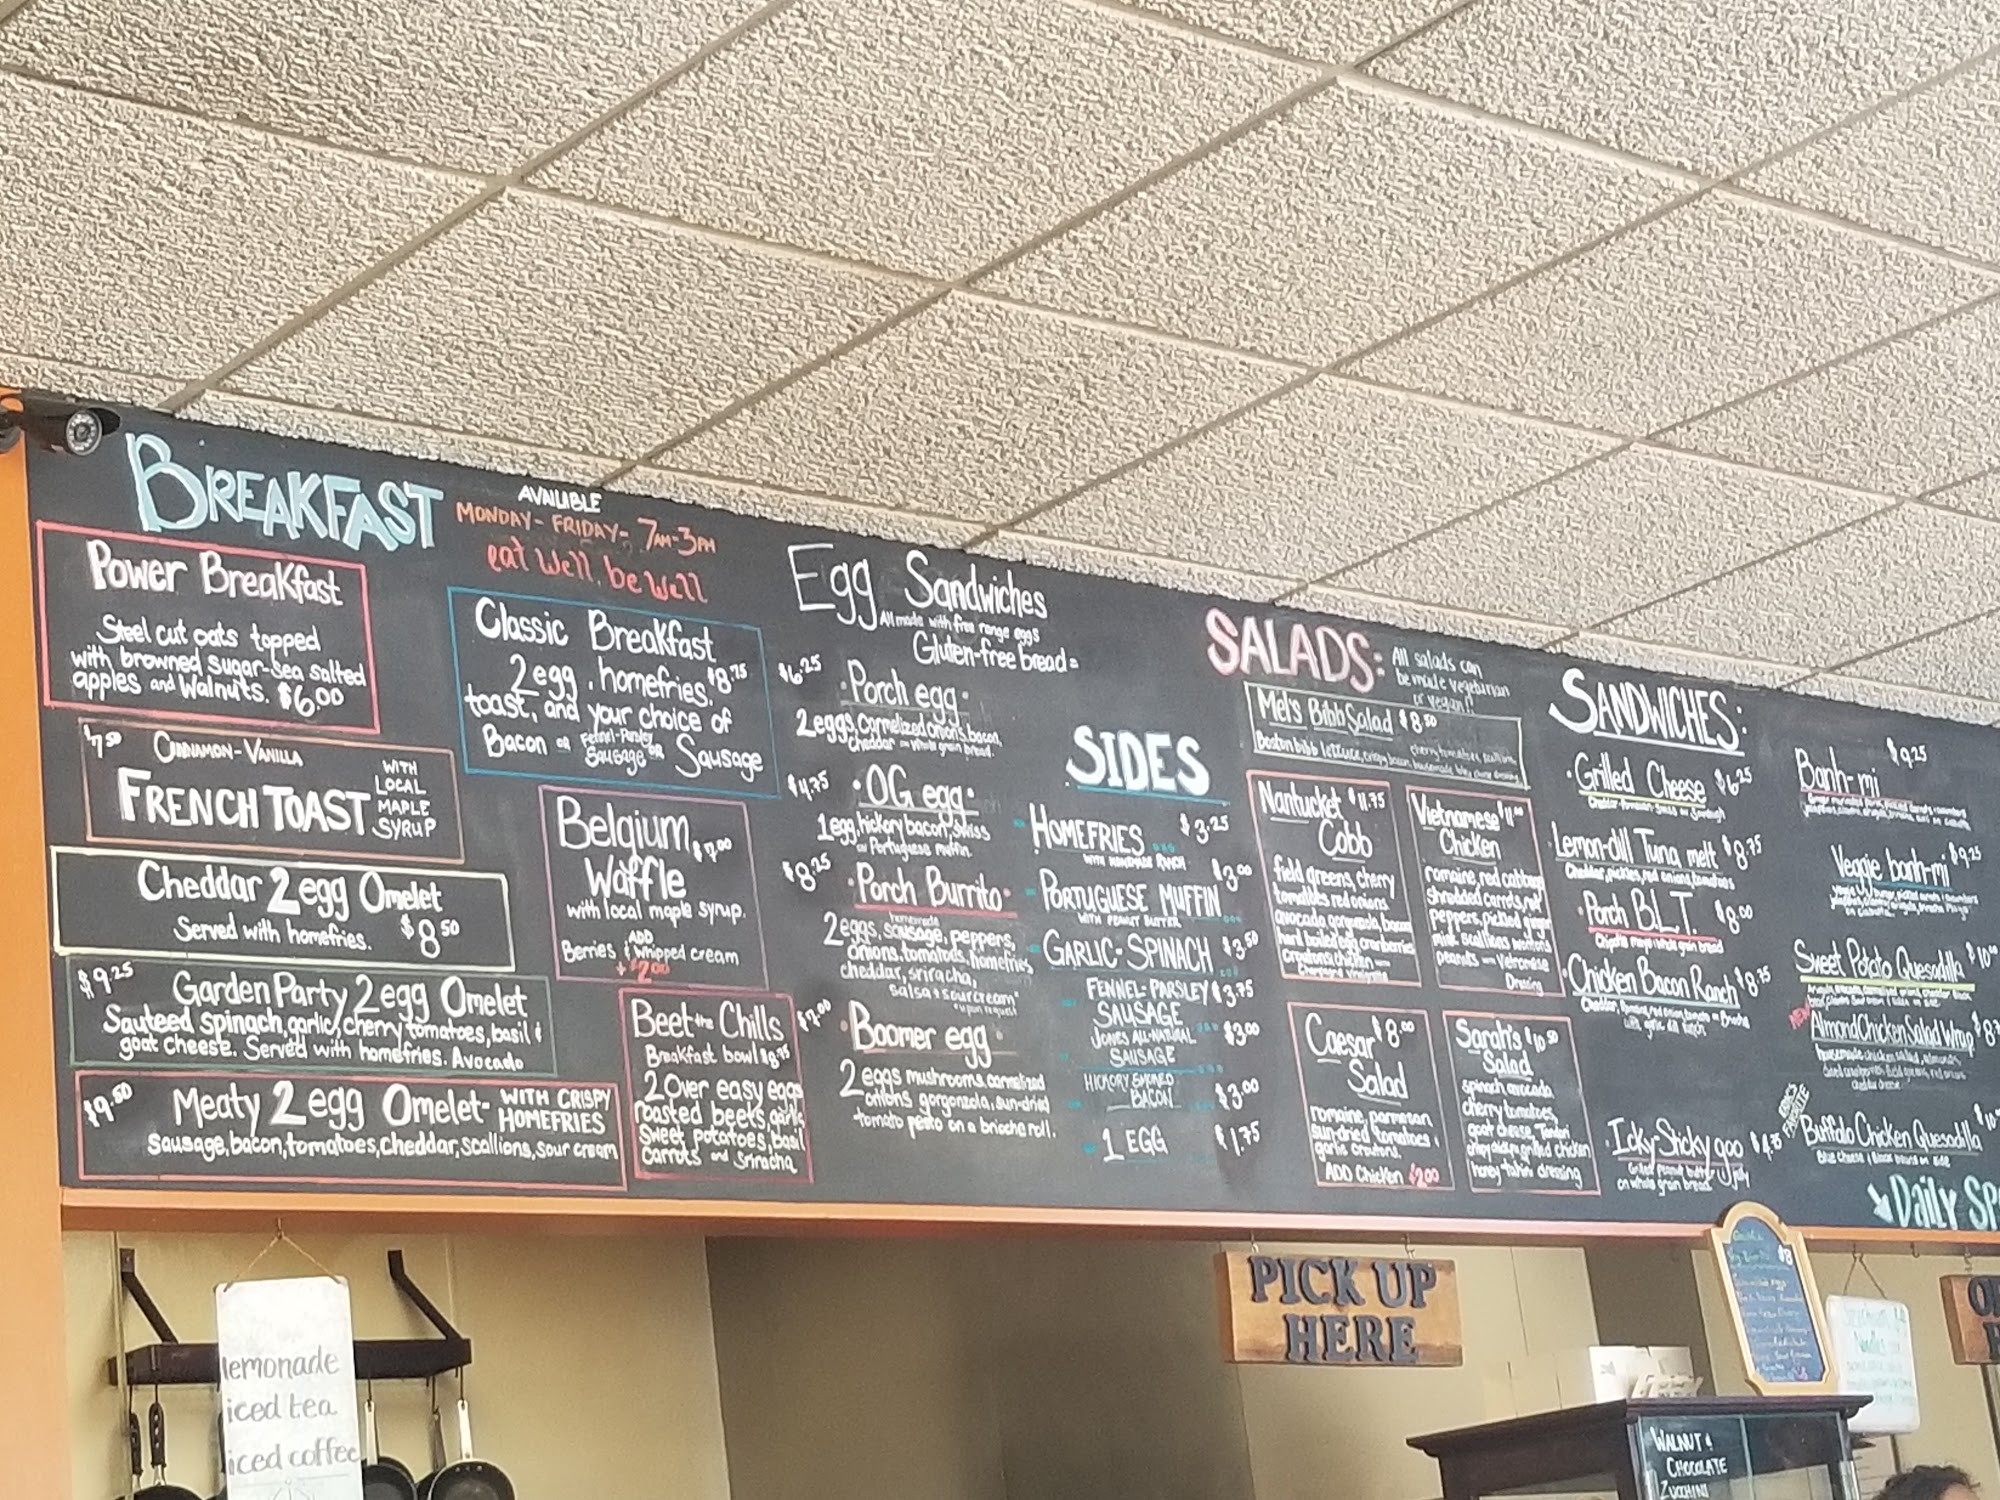 BREAKFAST
AVAILIBLE
MONDAY- FRIDAY- 7AM-3PM
eat well, be well
Power Breakfast
Steel cut oats topped
with browned sugar-sea salted
apples and walnuts. $6.00
$7.50 CINNAMON-VANILLA
FRENCH TOAST
WITH
LOCAL
MAPLE
SYRUP
Cheddar 2 egg Omelet
Served with homefries. $8.50
$9.25
Garden Party 2 egg Omelet
Sauteed spinach, garlic, cherry tomatoes, basil &
goat cheese. Served with homefries. Avocado
$9.50 Meaty 2 egg Omelet- WITH CRISPY
HOMEFRIES
Sausage, bacon, tomatoes, cheddar, scallions, sour cream
Classic Breakfast
2 egg, homefries, $8.75
toast, and your choice of
Bacon or Fennel-Parsley
Sausage or Sausage
Belgium $7.00
Waffle
with local maple syrup.
ADD
Berries & whipped cream
+ $2.00
Beet the Chills
Breakfast bowl $9.75
2 Over easy eggs
roasted beets, garlic
sweet potatoes, basil
carrots and sriracha
Egg Sandwiches
All made with free range eggs
Gluten-free bread=
$6.25 Porch egg
2 eggs, carmelized onions, bacon,
cheddar - whole grain bread.
$4.75 OG egg
1 egg, hickory bacon, swiss
on Portuguese muffin
$8.25 Porch Burrito
homemade
2 eggs, sausage, peppers,
onions, tomatoes, homefries
cheddar, sriracha,
salsa + sour cream
*upon request
$7.00 Boomer egg
2 eggs mushrooms, carmelized
onions gorgonzola, sun-dried
tomato pesto on a brioche roll.
SIDES
HOMEFRIES $3.25
WITH HOMEMADE RANCH
PORTUGUESE MUFFIN $3.00
WITH PEANUT BUTTER
GARLIC-SPINACH $3.50
FENNEL-PARSLEY $3.75
SAUSAGE
JONES ALL-NATURAL $3.00
SAUSAGE
HICKORY SMOKED
BACON $3.00
1 EGG $1.75
SALADS: All salads can
be made vegetarian
or vegan!
Mel's Bibb Salad $8.50
Boston bibb lettuce, crispy bacon, cherry tomatoes,
Nantucket $11.75
Cobb
field greens, cherry
tomatoes red onions
avocado gorgonzola, bacon
hard boiled egg cranberries
croutons, chicken
Champagne Vinaigrette
Vietnamese
Chicken
romaine, red cabbage
shredded carrots, red
peppers, pickled ginger
mint scallions wontons
peanuts - Vietnamese
Dressing
Caesar $8.00
Salad
romaine, parmesan
sun-dried tomatoes &
garlic croutons.
ADD Chicken $2.00
Sarah's $10.50
Salad
spinach avocado
cherry tomatoes,
goat cheese,
grilled chicken
honey-tahini dressing
SANDWICHES:
Grilled Cheese $6.25
Lemon-dill Tuna melt $8.75
Cheddar, pickles, red onions, tomatoes
Porch B.L.T. $8.00
Chipotle mayo whole grain bread
Chicken Bacon Ranch $8.75
Icky-Sticky goo
Grilled peanut butter & jelly
on whole grain bread
Banh-mi $9.25
Veggie banh-mi $9.25
Sweet Potato Quesadilla
NEW
Almond Chicken Salad Wrap
housemade chicken salad, almonds,
dried cranberries, field greens, red onions
cheddar cheese
ERIC'S
FAVORITE
Buffalo Chicken Quesadilla
Blue cheese
Daily Sp
PICK UP
HERE
lemonade
iced tea
iced coffee
WALNUT &
CHOCOLATE
ZUCCHINI